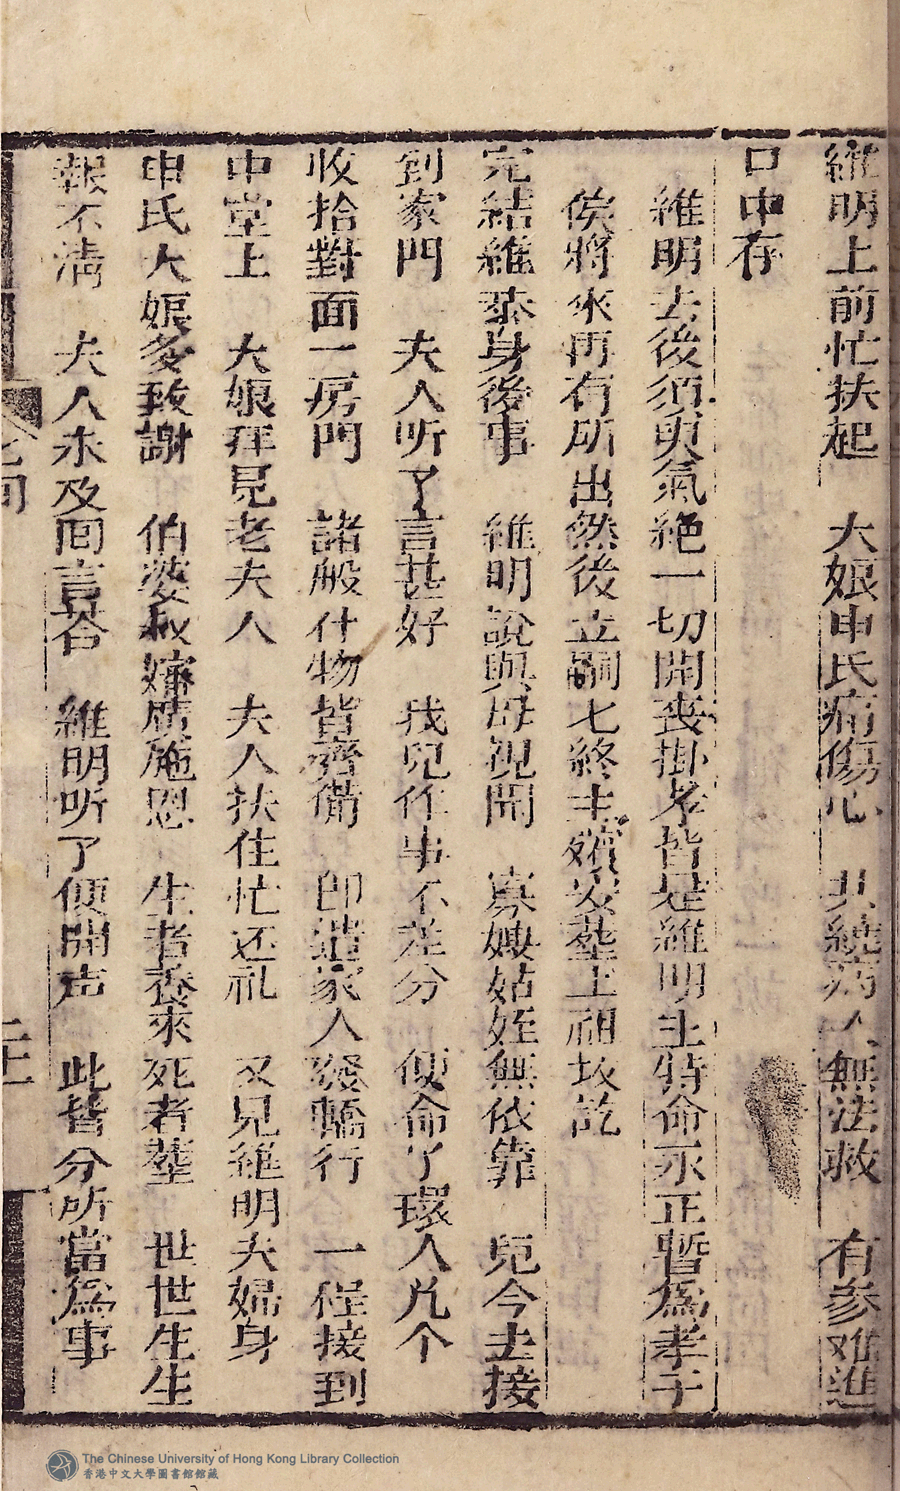 維明上前忙扶起　大娘申氏痛傷心　共繞病人無法救　有參难進
口中存
維明去後須臾氣絶一切開丧掛孝皆是維明主特命永正暫爲孝子
俟將來再有所出然後立嗣七終主殯安塟上祖坟訖
完結維恭身後事　維明說與母親聞　寡嫂姑姪無依靠　兒今去接
到家門　夫人听了言甚好　我兒作事不差分　便命了環人几个
收拾對面一房門　諸般什物皆齊備　即遣家人發轎行　一徑接到
中堂上　大娘拜見老夫人　夫人扶住忙还礼　又見維明夫婦身
申氏大娘多致謝　伯婆叔嬸廣施恩　生者養來死者塟　世世生生
報不清　夫人未及囬言荅　維明听了便開声　此皆分所當爲事
The Chinese University of Hong Kong Library Collection
香港中文大學圖書館館藏